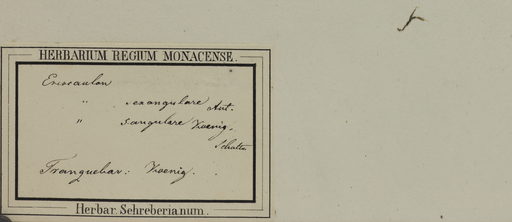 HERBARIUM REGIUM MONACENSE.
Eriocaulon
" sexangulare Aut.
" 5angulare Koenig.
Schultz.
Tranquebar: Koenig.
Herbar. Schreberianum.